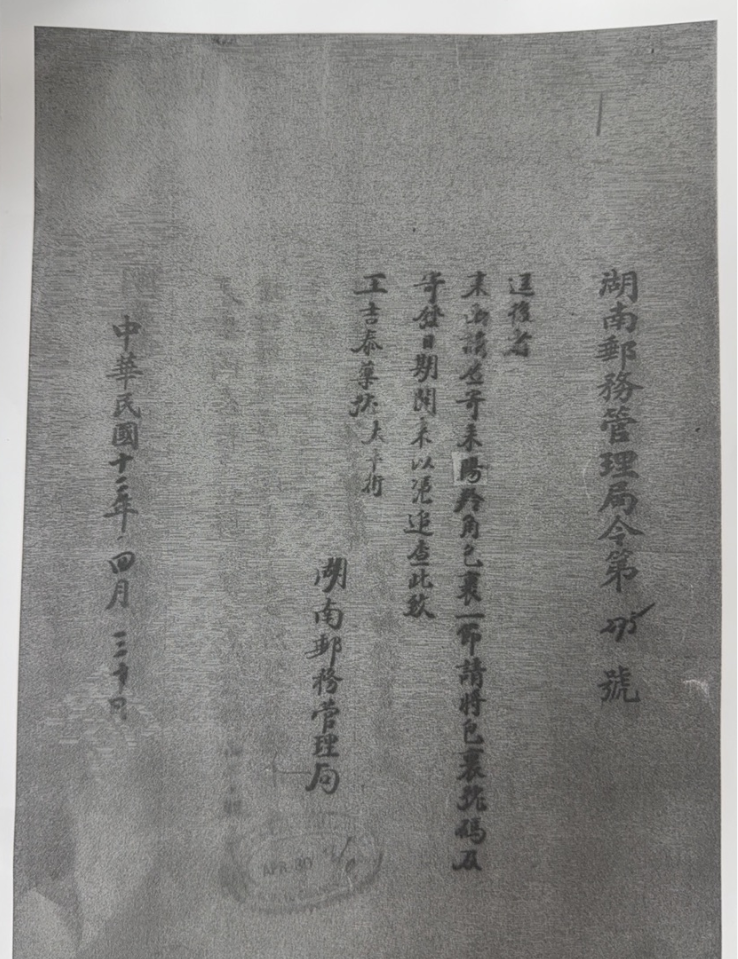 湖南郵務管理局令第 號
逕復者
來函請查寄耒陽羚角包裹一節請將包裹號碼及
寄發日期開來以憑追查此致
王吉泰藥號 太平街
湖南郵務管理局
中華民國十二年四月三十日
APR 30